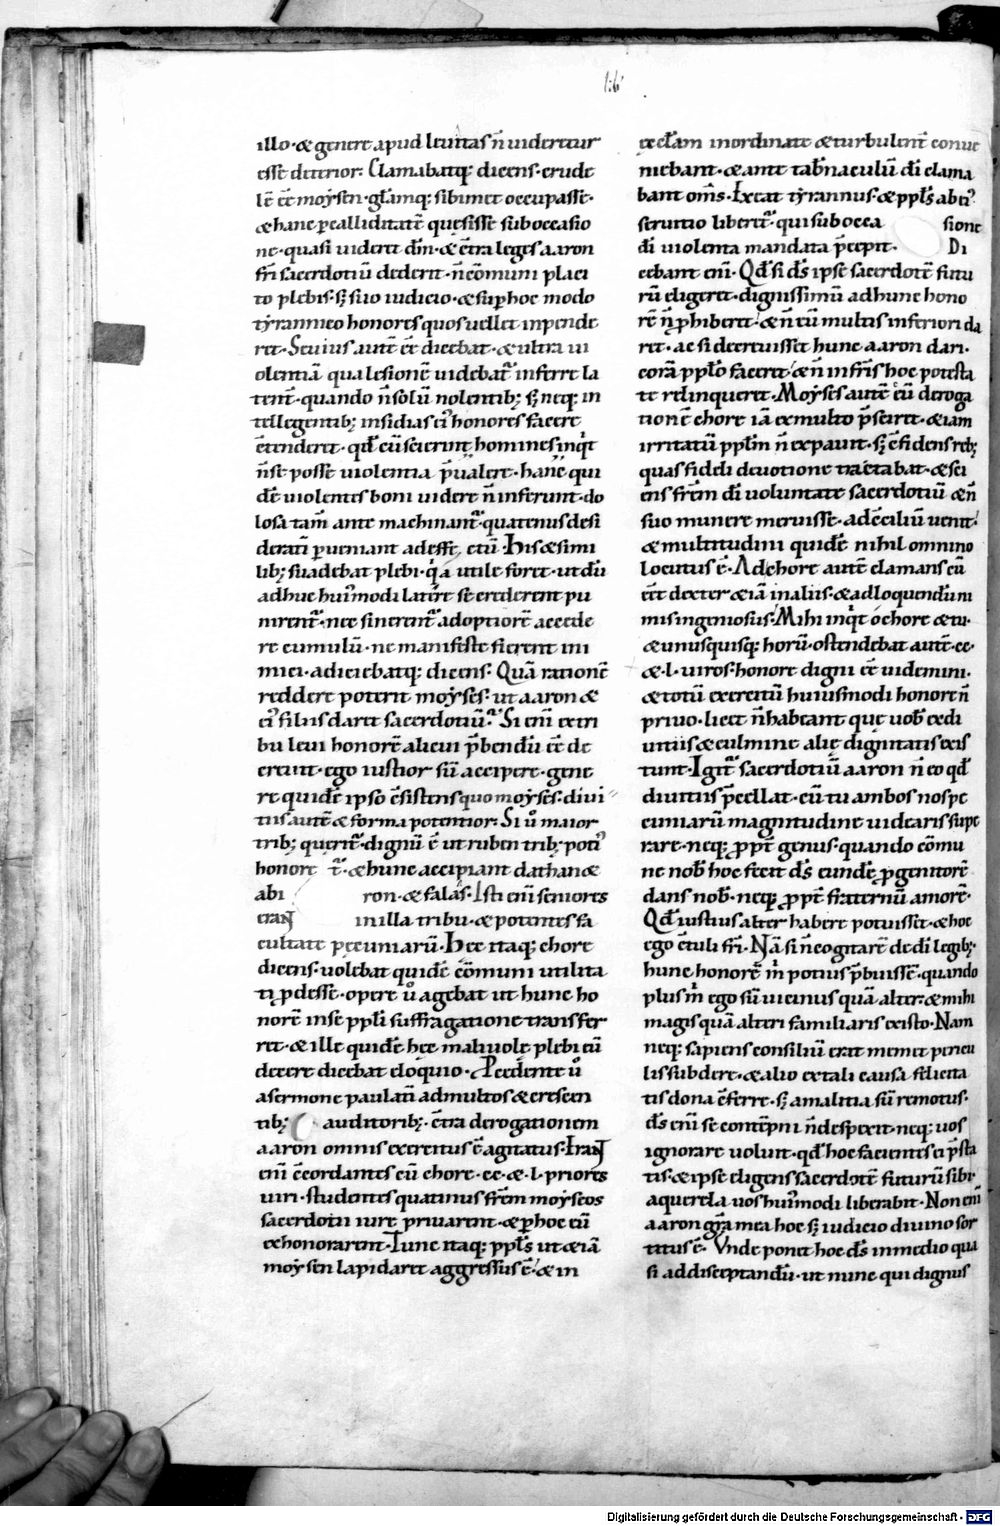 lib
illo · & genere apud leuitas n̄ uideretur
esse deterior: Clamabatq; dicens · crude
lē eē moysen · gl̄amq; sibimet occupasse ·
& hanc ꝑcalliditatē quęsisse suboccasio
ne · quasi uiderit dm̄ · & c̄tra leges aaron
fr̄i sacerdotiū dederit · n̄ cōmuni placi
to plebis · sꝫ suo iudicio · & suꝑ hoc modo
tyrannico honores quos uellet inpende
ret · Seuius autē eē dicebat · & ultra ui
olentiā qua lesionē uidebat᷑ inferre la
tent᷑ · quando n̄ solū nolentibꝫ sꝫ neq; in
tellegentibꝫ insidias ei᷒ honores facere
c̄tenderet · qđ cū scierint homines inqͥt
n̄ se posse uiolentia p̄ualere · hanc qui
dē uiolentes boni uidere n̄ inferunt · do
losa tam̄ ante machinant᷑ · quatenus desi
derati ꝑueniant ad effectū · His & simi
libꝫ suadebat plebi · qͥa utile foret · ut dū
adhuc hui᷒modi latēre se crederent pu
nirent᷑ · nec sinerent᷑ adoptiorē accede
re cumulū · ne manifeste fierent ini
mici · adiciebatq; dicens · Quā rationē
reddere poterit moyses · ut aaron &
ei᷒ filiis daret sacerdotiū · Si eni᷒ ex tri
bu leui honorē alicui p̄bendū eē de
creuit · ego iustior sū accipere · gene
re quidē ipso c̄sistens quo moyses · diui
tiis autē & forma potentior: Si u̇ maior
tribꝫ querit᷑ · dignū ē ut ruben tribꝫ poti᷒
honoret᷑ · & hunc accipiant dathan &
abiron · & falas · Isti eni᷒ seniores
erant in illa tribu · & potentes fa
cultate pecuniarū · Hec itaq; chore
dicens · uolebat quidē cōmuni utilita
ti ꝓdesse · opere u̇ agebat ut hunc ho
norē in se ppl̄i suffragatione transfer
ret · & ille quidē hęc maliuole plebi cū
decere dicebat eloquio · Pcedente u̇
a sermone paulati᷒ ad multos & crescen
tibꝫ auditoribꝫ · c̄tra derogationem
aaron omnis exercitus ē agitatus · Erant
eni᷒ c̄cordantes cū chore · cc · & · l · priores
uiri · studentes quatinus fr̄em moyseos
sacerdotii iure priuarent · & ꝑ hoc eū
exhonorarent · Tunc itaq; ppl̄s ut &iā
moysen lapidaret aggressus ē · & in
ęccl̄am inordinate & turbulent᷑ conue
niebant · & ante tab̄naculū di᷒ clama
bant om̄s · Exeat tyrannus · & ppl̄s ab ei᷒
seruitio liberet᷑ · qui sub occasione
di᷒ uiolenta mandata p̄cepit · Di
cebant eni᷒ · Qđ si dš ipse sacerdotē futu
rū eligeret · dignissimū ad hunc hono
rē n̄ ꝓhiberet · & n̄ eū multis inferiori da
ret · ac si decreuisset hunc aaron dari ·
corā ppl̄o faceret · & n̄ in fr̄is hoc potesta
te relinqueret · Moyses autē cū deroga
tionē chore iā ex multo p̄sciret · & iam
irritatū ppl̄m n̄ expauit · sꝫ c̄fidens rebꝫ
quas fideli deuotione tractabat · & sci
ens fr̄em di᷒ uoluntate sacerdotiū & n̄
suo munere meruisse · ad c̄ciliū uenit ·
& multitudini quidē nihil omnino
locutus ē · Ad chore autē clamans cū
eēt dexter & iā in aliis · & ad loquendū ni
mis ingeniosus · Mihi inqͥt o chore & tu ·
& unusquisq; horū · ostendebat autē · cc ·
& · l · uiros · honore digni eē uidemini ·
& totū exercitū huiusmodi honore n̄
priuo · licet n̄ habeant quę uob̄ ex di
uitiis & culmine alię dignitatis exis
tunt · Igit᷑ sacerdotiū aaron n̄ eo qđ
diuitiis p̄cellat · cū tu ambos nos pe
cuniarū magnitudine uidearis supe
rare · neq; ꝓpt̄ genus · quando cōmu
ne nob̄ hoc fecit dš eundē ꝓgenitorē
dans nob̄ · neq; ꝓpt̄ fraternū amorē ·
Qđ iustius alter habere potuisset · & hoc
ego c̄tuli fr̄i · Nā si n̄ cogitarē de di᷒ legibꝫ
hunc honorē mͥ potius p̄buissē · quando
plus mͥ ego sū uicinus quā alter · & mihi
magis quā alteri familiaris existo · Nam
neq; sapiens consiliū erat memet pericu
lis subdere · & alio ex tali causa felicita
tis dona c̄ferre · sꝫ a malitia sū remotus ·
dš eni᷒ se contēpni n̄ despexit · neq; uos
ignorare uoluit · qđ hoc facientes ei p̄sta
tis · & ipse eligens sacerdotē futurū sibi ·
a querela uos hui᷒modi liberabit · Non eni᷒
aaron gr̄a mea hoc sꝫ iudicio diuino sor
titus ē · Vnde ponet hoc dš in medio qua
si ad disceptandū · ut nunc qui dignus
Digitalisierung gefördert durch die Deutsche Forschungsgemeinschaft - DFG